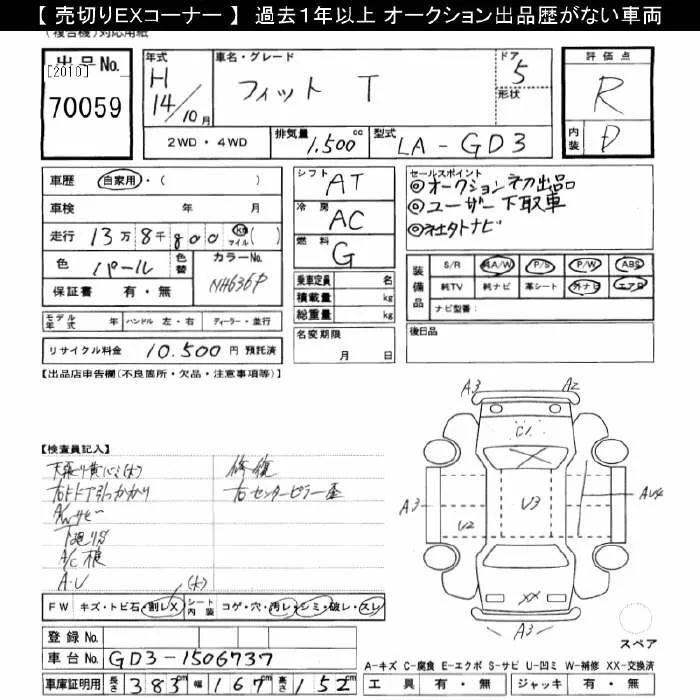 【 売切りEXコーナー 】 過去1年以上 オークション出品歴がない車両
(複合機)対応用紙
出品No.
[2010]
70059
年式 車名・グレード ドア 評価点
H 14/10月 フィット T 5 形状 R
2WD・4WD 排気量 1.500 cc 型式 LA-GD3 内装 D
車歴 自家用・( )
車検 年 月
走行 13万8千800 km マイル ( )
色 パール 色替 カラーNo. NH636P
保証書 有・無
シフト AT
冷房 AC
燃料 G
乗車定員 名
積載量 kg
総重量 kg
セールスポイント
◎オークション初出品
◎ユーザー下取車
◎社外ナビ
装備品 S/R 純A/W P/S P/W ABS
純TV 純ナビ 革シート 外ナビ エアB
ナビ型番:
モデル年式 年 ハンドル 左・右 ディーラー・並行
名変期限 月 日
後日品
リサイクル料金 10.500円 預託済
【出品店申告欄(不良箇所・欠品・注意事項等)】
【検査員記入】
修復
右センターピラー歪
A/Wサビ
A.U
FW キズ・トビ石・割レX シート内装 コゲ・穴・汚レ・シミ・破レ・スレ
A3 A2
C1
A3 U2 U3 AU4
XX
A3
スペア
登録No.
車台No. GD3-1506737
車庫証明用 長さ 383cm 幅 167cm 高さ 152cm
A-キズ C-腐食 E-エクボ S-サビ U-凹ミ W-補修 XX-交換済
工具 有・無 ジャッキ 有・無